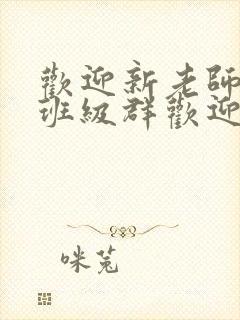 歡迎新老師
班級群歡迎
咪菟